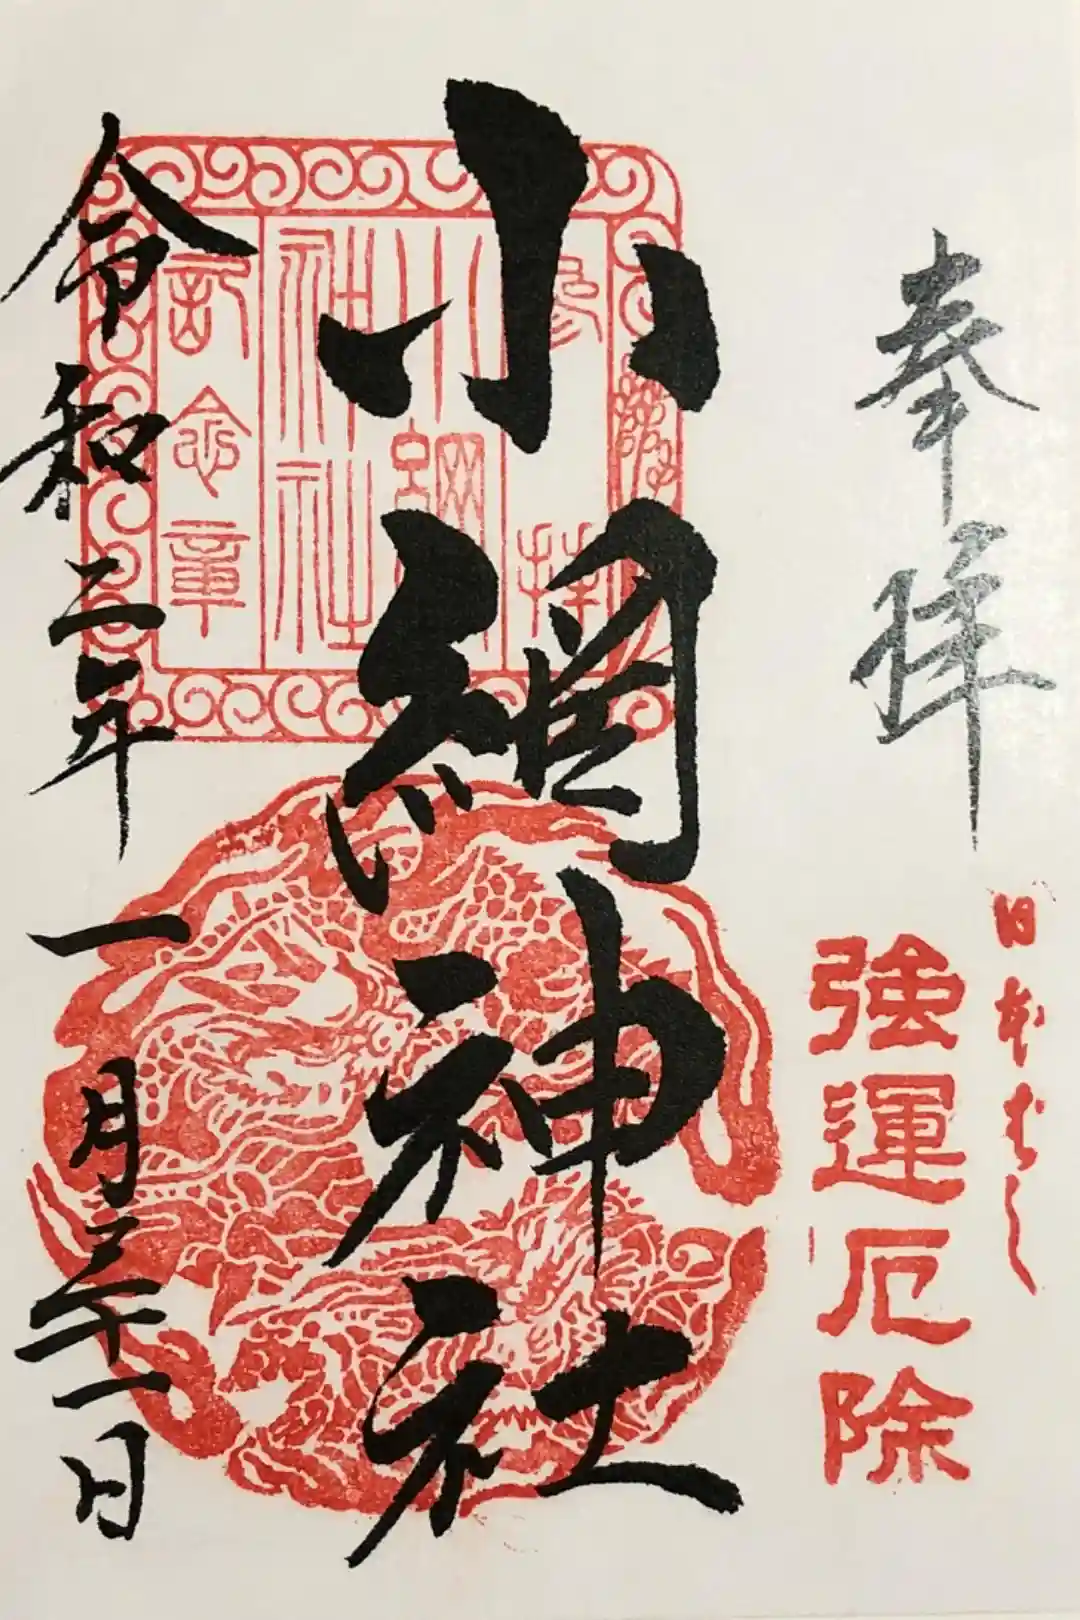 奉拝
日本はし
強運厄除
小網神社
参拝
小網
神社
記念章
令和二年一月三十一日